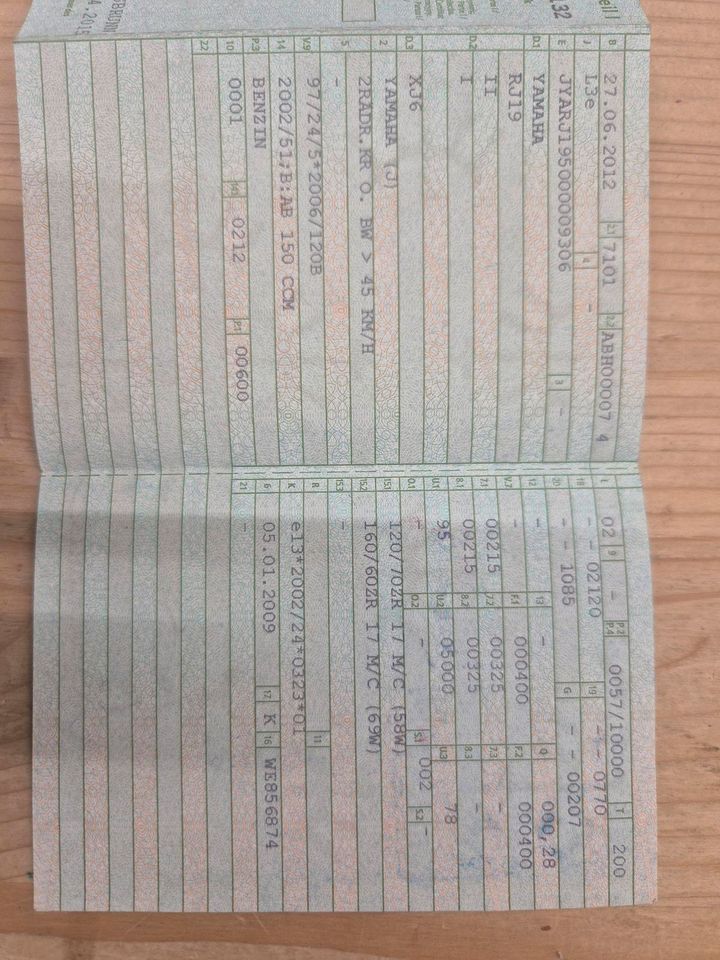 eil I
,32
BRUNN
4.201
B 27.06.2012 2.1 7101 2.2 ABH00007 4
J L3e 4 -
E JYARJ195000009306 3 -
D.1 YAMAHA
RJ19
D.2 II
I
D.3 XJ6
2 YAMAHA (J)
5 2RÄDR.KR O. BW > 45 KM/H
-
V.9 97/24/5*2006/120B
14 2002/51;B:AB 150 CCM
P.3 BENZIN
10 0001 0212 P.1 00600
22
L 02 9 - P.2 P.4 0057/10000 T 200
18 - - 02120 19 - - 0770
20 - - 1085 G - - 00207
12 - 13 - Q 000,28
V.7 - F.1 000400 F.2 000400
7.1 00215 7.2 00325 7.3 -
8.1 00215 8.2 00325 8.3 -
U.1 95 U.2 05000 U.3 78
O.1 - O.2 - S.1 002 S.2 -
15.1 120/70ZR 17 M/C (58W)
15.2 160/60ZR 17 M/C (69W)
15.3 -
R 11
K e13*2002/24*0323*01
6 05.01.2009 17 K 16 WE856874
21 -